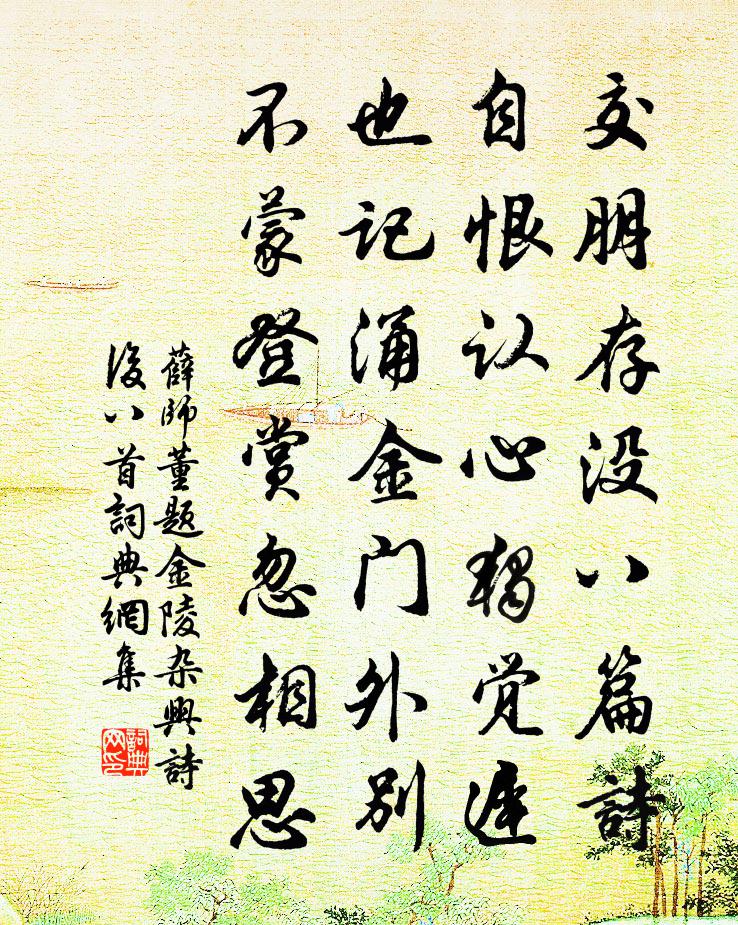 交朋存没八篇詩
自恨认心獨觉遲
也记涌金门外别
不蒙登赏忽相思
薛師董题金陵杂興詩
後八首詞典網集
詞典网印